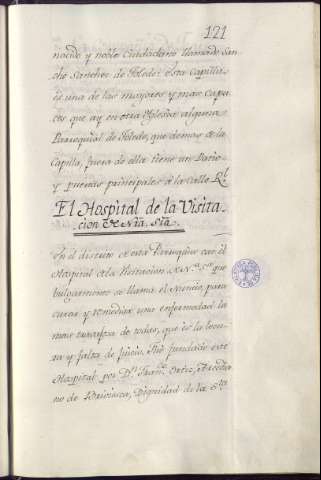 121
nocido y noble Ciudadano llamado San
cho Sanchez de Toledo: esta Capilla
es una de las mayores y mas capa
ces que ay en otra Iglesia alguna
Parroquial de Toledo, que demas de la
Capilla, fuera de ella tiene un Patio
y puertas principales a la calle Rl.
El Hospital de la Visita
cion de Nra. Sra.
En el distrito de esta Parroquia cae el
Hospital de la Visitacion de N. Sra que
bulgarmente se llama el Nuncio, para
curar y remediar una enfermedad la
mas trabajosa de todas, que es la locu
ra y falta de juicio. Fue fundado este
Hospital por Dn. Franco. Ortiz, Arcedia
no de Briviesca, Dignidad de la Sta